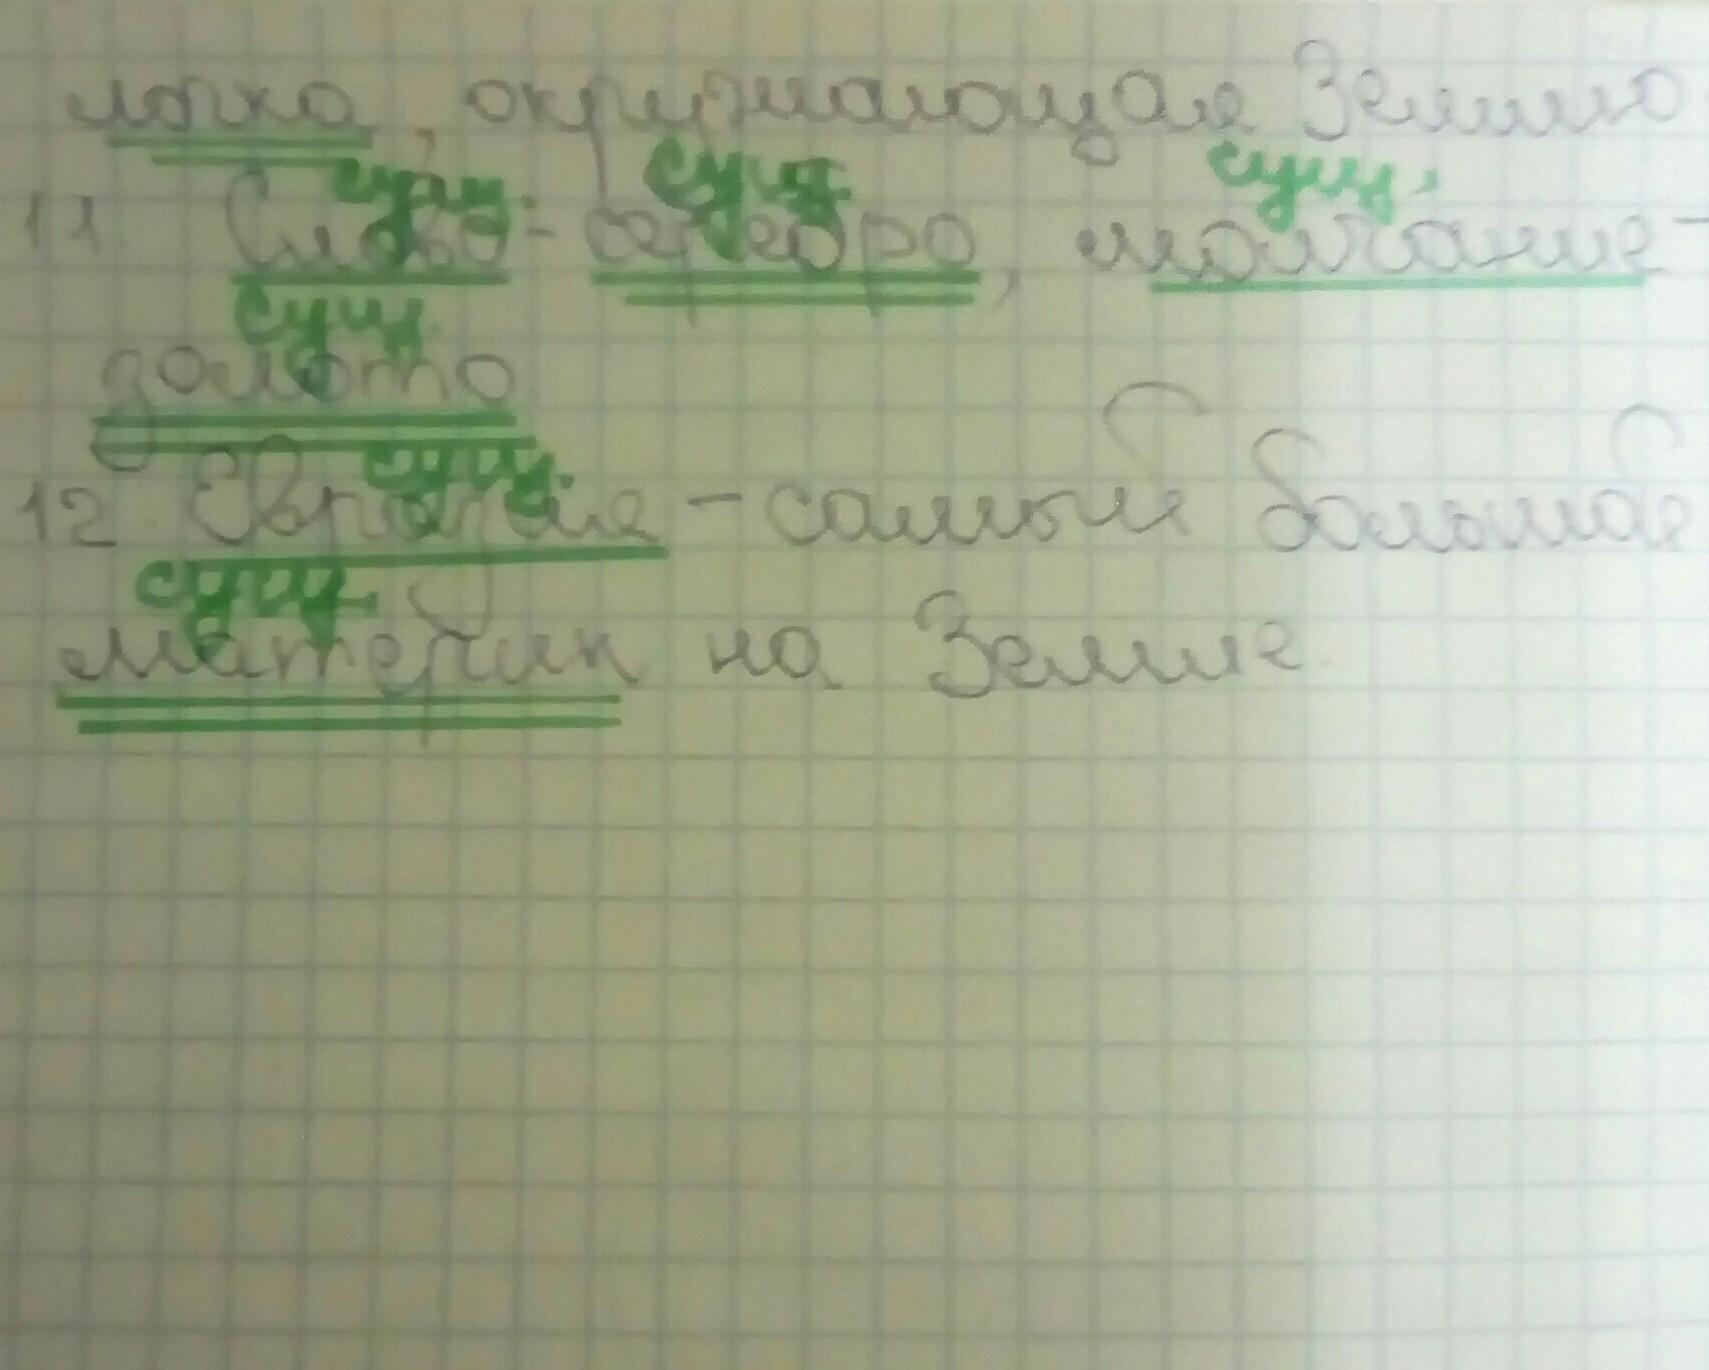 лочка, окружающая Землю
сущ. сущ сущ.
11. Слово - серебро, молчание -
сущ.
золото
сущ.
12 Евразия - самый большой
сущ.
материк на Земле.